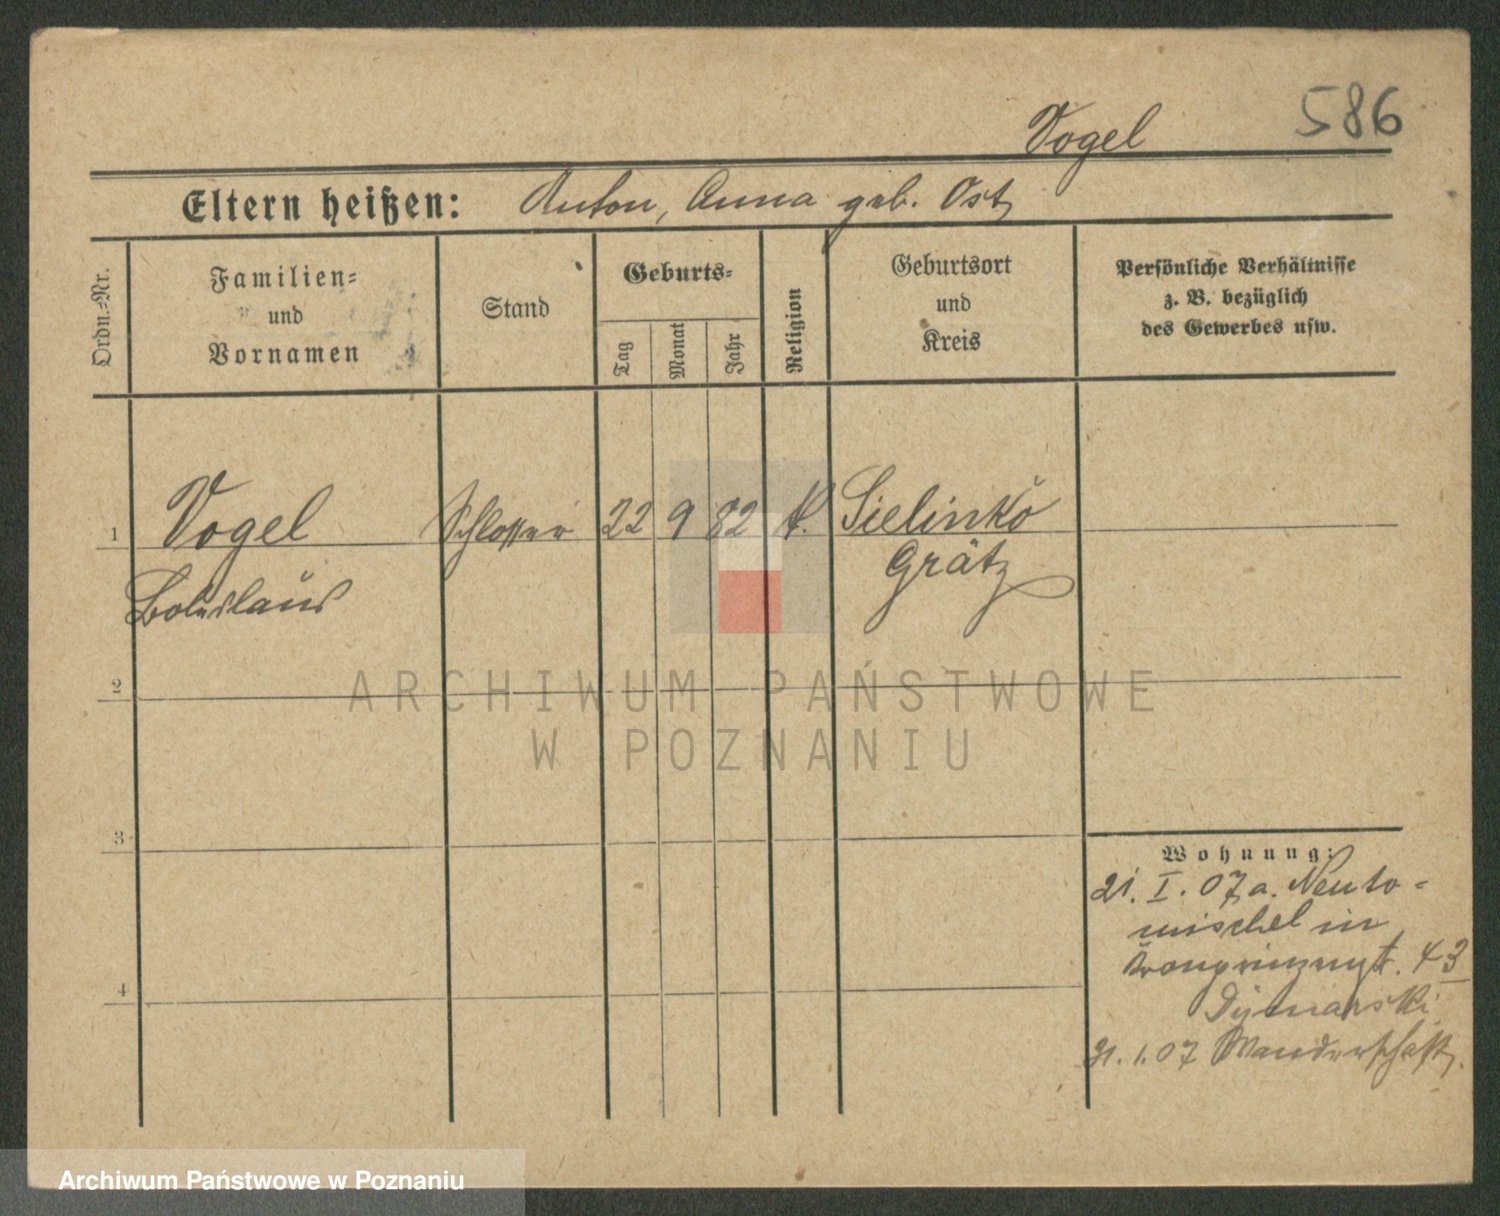 586
Vogel
Eltern heißen: Anton, Anna geb. Ost
Ordn.=Nr.
Familien=
und
Vornamen
Stand
Geburts=
Tag
Monat
Jahr
Religion
Geburtsort
und
Kreis
Persönliche Verhältnisse
z. B. bezüglich
des Gewerbes usw.
1
Vogel Schlosser 22 9 82 k. Sielinko
Boleslaus Grätz
2
3
4
Wohnung:
21. I. 07 a. Neuto=
mischel in
Kronprinzenst. 43
Dymarski
31. 1. 07 Wanderschaft.
ARCHIWUM PAŃSTWOWE
W POZNANIU
Archiwum Państwowe w Poznaniu